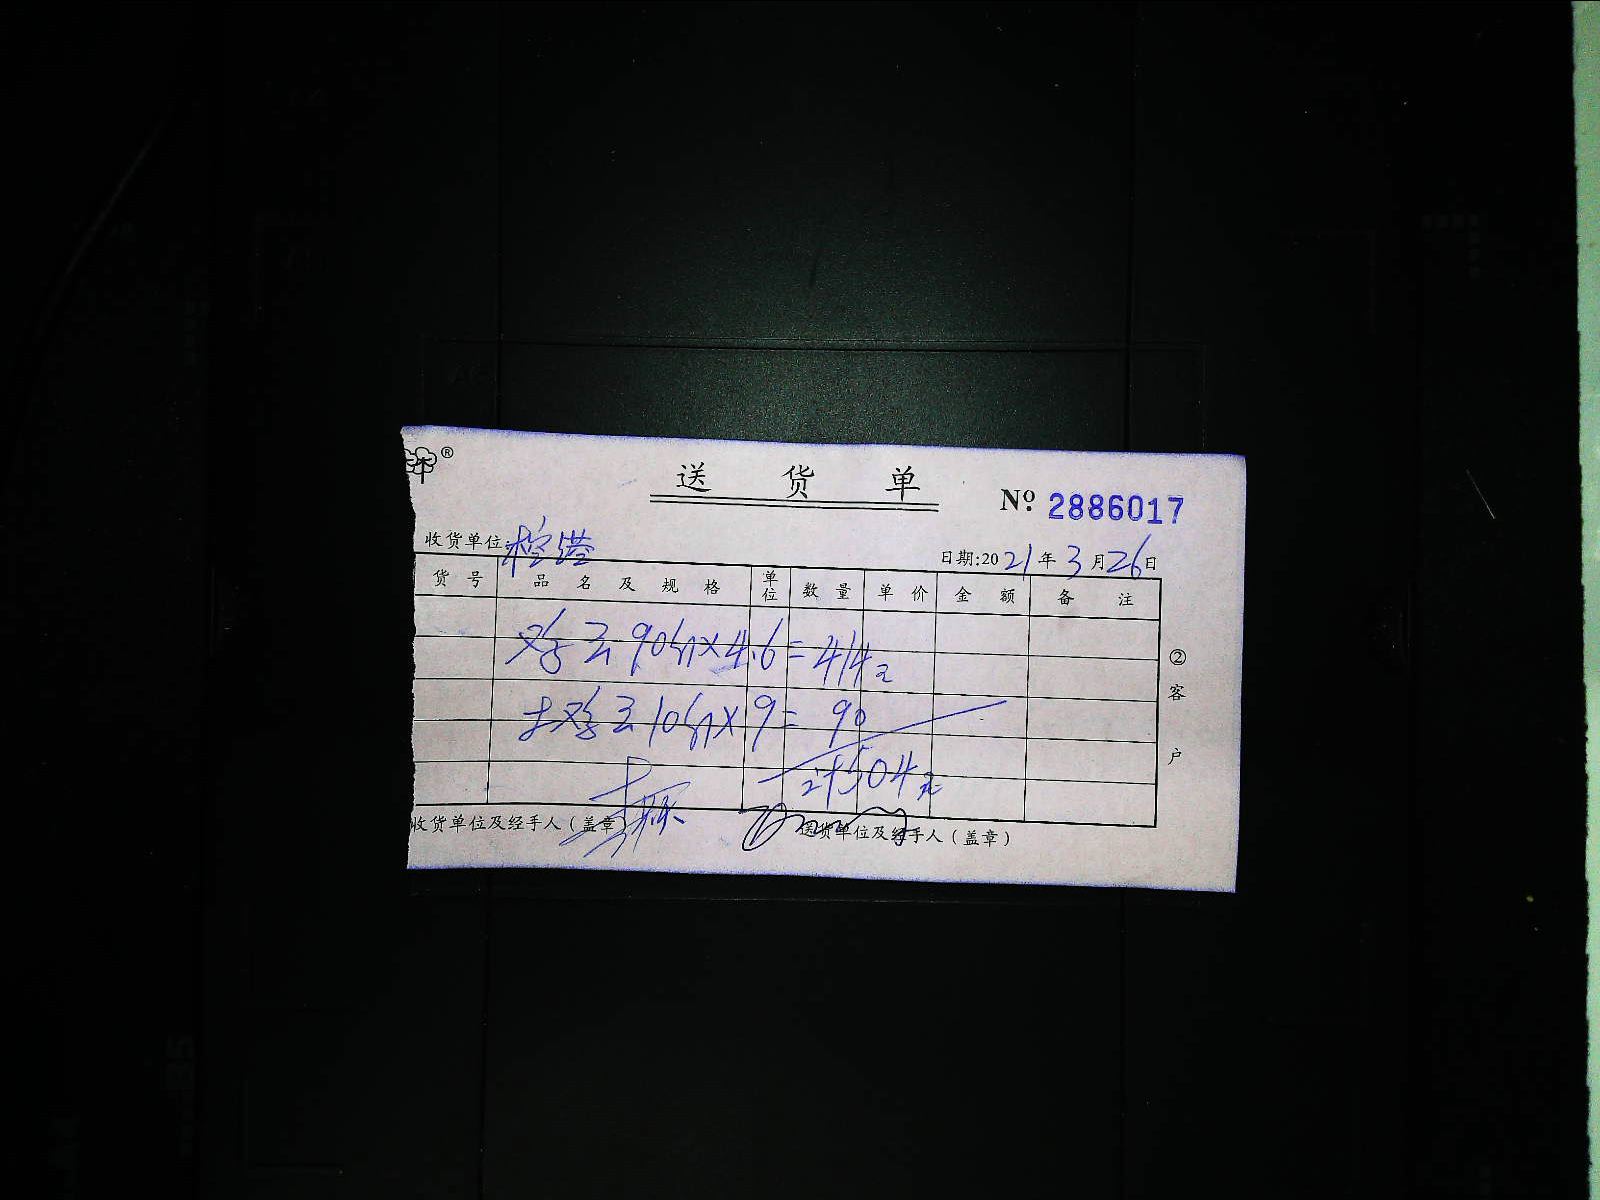 ®
送货单
No. 2886017
收货单位:
日期:2021年3月26日
货号 品名及规格 单位 数量 单价 金额 备注
鸡云90斤×4.6=414元
土鸡云10斤×9=90
计504元
②客户
收货单位及经手人(盖章)
送货单位及经手人(盖章)